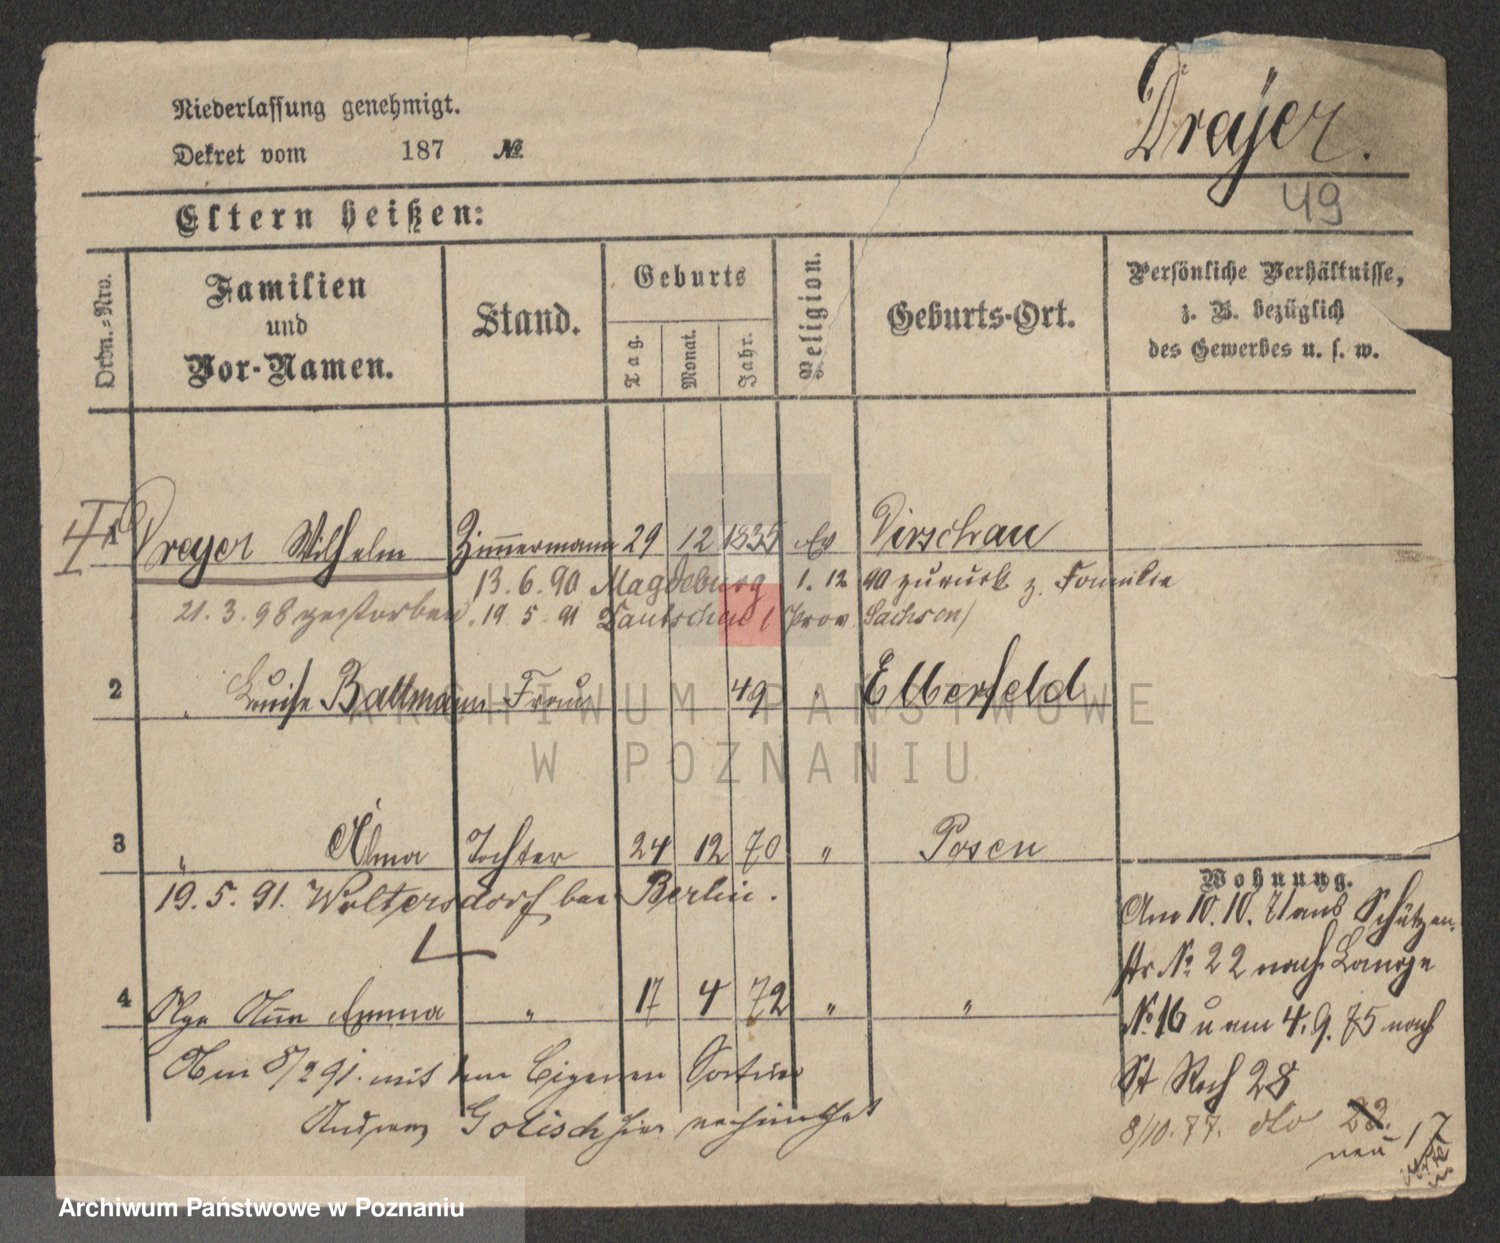 Niederlassung genehmigt.
Dekret vom 187 №
Dreyer.
49
Eltern heißen:
Ordn.-Nro.
Familien
und
Vor-Namen.
Stand.
Geburts
Tag.
Monat.
Jahr.
Religion.
Geburts-Ort.
Persönliche Verhältnisse,
z. B. bezüglich
des Gewerbes u. s. w.
1 Dreyer Wilhelm Zimmermann 29 12 1835 Ev Dirschau
13. 6. 90 Magdeburg 1. 12 90 zurück z. Familie
21. 3. 98 gestorben. 19. 5. 91 (Prov Sachsen)
2 Louise Frau 49 " Elberfeld
3 " Alma Tochter 24 12 70 " Posen
19. 5. 91. Woltersdorf bei Berlin.
4 Olga Emma " 17 4 72 " "
Am 8/2 91. mit dem
hier verheirathet
Wohnung.
Am 10. 10. 71 aus Schützen-
str № 22 nach Lange
№ 16 u am 4. 9. 75 nach
St Roch 28
8/10. 77. dto 22.
neu 17
ARCHIWUM PAŃSTWOWE
W POZNANIU
Archiwum Państwowe w Poznaniu